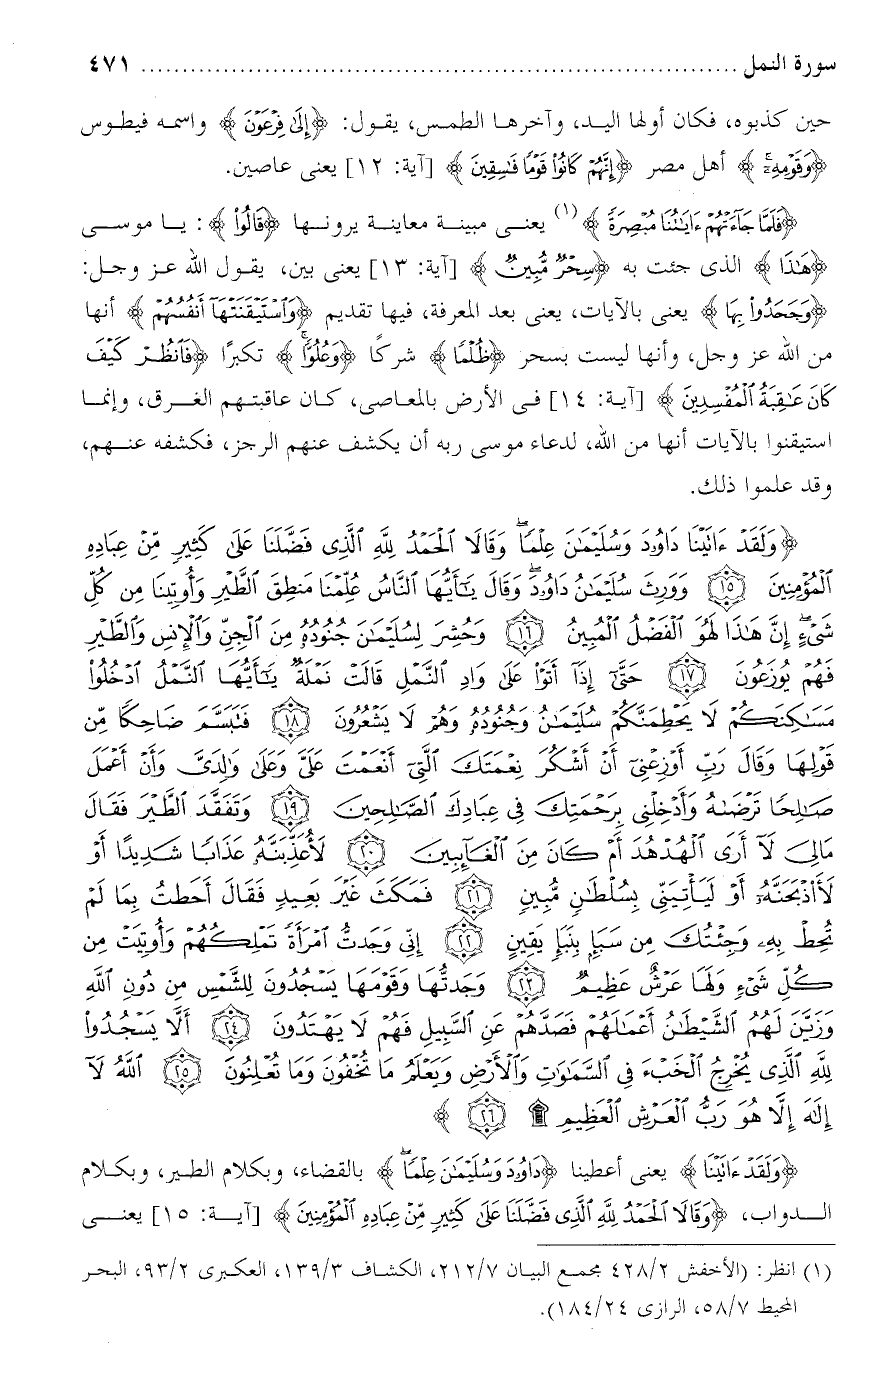 سورة النمل ........................................................................ ٤٧١
حين كذبوه، فكان أولها اليد، وآخرها الطمس، يقول: ﴿إِلَىٰ فِرْعَوْنَ﴾ واسمه فيطوس
﴿وَقَوْمِهِۦٓ﴾ أهل مصر ﴿إِنَّهُمْ كَانُوا۟ قَوْمًا فَـٰسِقِينَ﴾ [آية: ١٢] يعنى عاصين.
﴿فَلَمَّا جَآءَتْهُمْ ءَايَـٰتُنَا مُبْصِرَةً﴾(١) يعنى مبينة معاينة يرونها ﴿قَالُوا۟﴾: يا موسى
﴿هَـٰذَا﴾ الذى جئت به ﴿سِحْرٌ مُّبِينٌ﴾ [آية: ١٣] يعنى بين، يقول الله عز وجل:
﴿وَجَحَدُوا۟ بِهَا﴾ يعنى بالآيات، يعنى بعد المعرفة، فيها تقديم ﴿وَٱسْتَيْقَنَتْهَآ أَنفُسُهُمْ﴾ أنها
من الله عز وجل، وأنها ليست بسحر ﴿ظُلْمًا﴾ شركًا ﴿وَعُلُوًّا ۚ﴾ تكبرًا ﴿فَٱنظُرْ كَيْفَ
كَانَ عَـٰقِبَةُ ٱلْمُفْسِدِينَ﴾ [آية: ١٤] فى الأرض بالمعاصى، كان عاقبتهم الغرق، وإنما
استيقنوا بالآيات أنها من الله، لدعاء موسى ربه أن يكشف عنهم الرجز، فكشفه عنهم،
وقد علموا ذلك.
﴿وَلَقَدْ ءَاتَيْنَا دَاوُۥدَ وَسُلَيْمَـٰنَ عِلْمًا ۖ وَقَالَا ٱلْحَمْدُ لِلَّهِ ٱلَّذِى فَضَّلَنَا عَلَىٰ كَثِيرٍ مِّنْ عِبَادِهِ
ٱلْمُؤْمِنِينَ ١٥ وَوَرِثَ سُلَيْمَـٰنُ دَاوُۥدَ ۖ وَقَالَ يَـٰٓأَيُّهَا ٱلنَّاسُ عُلِّمْنَا مَنطِقَ ٱلطَّيْرِ وَأُوتِينَا مِن كُلِّ
شَىْءٍ ۖ إِنَّ هَـٰذَا لَهُوَ ٱلْفَضْلُ ٱلْمُبِينُ ١٦ وَحُشِرَ لِسُلَيْمَـٰنَ جُنُودُهُۥ مِنَ ٱلْجِنِّ وَٱلْإِنسِ وَٱلطَّيْرِ
فَهُمْ يُوزَعُونَ ١٧ حَتَّىٰٓ إِذَآ أَتَوْا۟ عَلَىٰ وَادِ ٱلنَّمْلِ قَالَتْ نَمْلَةٌ يَـٰٓأَيُّهَا ٱلنَّمْلُ ٱدْخُلُوا۟
مَسَـٰكِنَكُمْ لَا يَحْطِمَنَّكُمْ سُلَيْمَـٰنُ وَجُنُودُهُۥ وَهُمْ لَا يَشْعُرُونَ ١٨ فَتَبَسَّمَ ضَاحِكًا مِّن
قَوْلِهَا وَقَالَ رَبِّ أَوْزِعْنِىٓ أَنْ أَشْكُرَ نِعْمَتَكَ ٱلَّتِىٓ أَنْعَمْتَ عَلَىَّ وَعَلَىٰ وَٰلِدَىَّ وَأَنْ أَعْمَلَ
صَـٰلِحًا تَرْضَىٰهُ وَأَدْخِلْنِى بِرَحْمَتِكَ فِى عِبَادِكَ ٱلصَّـٰلِحِينَ ١٩ وَتَفَقَّدَ ٱلطَّيْرَ فَقَالَ
مَالِىَ لَآ أَرَى ٱلْهُدْهُدَ أَمْ كَانَ مِنَ ٱلْغَآئِبِينَ ٢٠ لَأُعَذِّبَنَّهُۥ عَذَابًا شَدِيدًا أَوْ
لَأَا۟ذْبَحَنَّهُۥٓ أَوْ لَيَأْتِيَنِّى بِسُلْطَـٰنٍ مُّبِينٍ ٢١ فَمَكَثَ غَيْرَ بَعِيدٍ فَقَالَ أَحَطتُ بِمَا لَمْ
تُحِطْ بِهِۦ وَجِئْتُكَ مِن سَبَإٍۭ بِنَبَإٍ يَقِينٍ ٢٢ إِنِّى وَجَدتُّ ٱمْرَأَةً تَمْلِكُهُمْ وَأُوتِيَتْ مِن
كُلِّ شَىْءٍ وَلَهَا عَرْشٌ عَظِيمٌ ٢٣ وَجَدتُّهَا وَقَوْمَهَا يَسْجُدُونَ لِلشَّمْسِ مِن دُونِ ٱللَّهِ
وَزَيَّنَ لَهُمُ ٱلشَّيْطَـٰنُ أَعْمَـٰلَهُمْ فَصَدَّهُمْ عَنِ ٱلسَّبِيلِ فَهُمْ لَا يَهْتَدُونَ ٢٤ أَلَّا يَسْجُدُوا۟
لِلَّهِ ٱلَّذِى يُخْرِجُ ٱلْخَبْءَ فِى ٱلسَّمَـٰوَٰتِ وَٱلْأَرْضِ وَيَعْلَمُ مَا تُخْفُونَ وَمَا تُعْلِنُونَ ٢٥ ٱللَّهُ لَآ
إِلَـٰهَ إِلَّا هُوَ رَبُّ ٱلْعَرْشِ ٱلْعَظِيمِ ۩ ٢٦﴾
﴿وَلَقَدْ ءَاتَيْنَا﴾ يعنى أعطينا ﴿دَاوُۥدَ وَسُلَيْمَـٰنَ عِلْمًا ۖ﴾ بالقضاء، وبكلام الطير، وبكلام
الدواب، ﴿وَقَالَا ٱلْحَمْدُ لِلَّهِ ٱلَّذِى فَضَّلَنَا عَلَىٰ كَثِيرٍ مِّنْ عِبَادِهِ ٱلْمُؤْمِنِينَ﴾ [آية: ١٥] يعنى
(١) انظر: (الأخفش ٤٢٨/٢ مجمع البيان ٢١٢/٧، الكشاف ١٣٩/٣، العكبرى ٩٣/٢، البحر
المحيط ٥٨/٧، الرازى ١٨٤/٢٤).